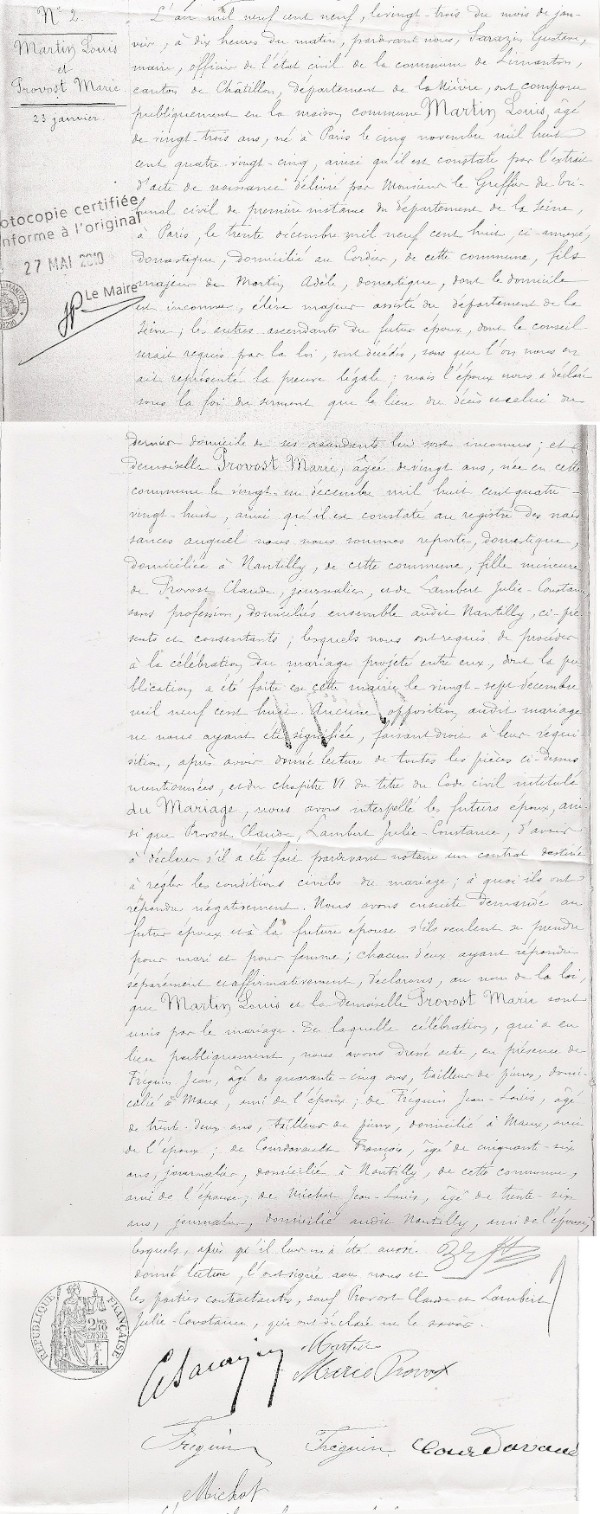 N° 2
Martin Louis
et
Provost Marie
23 janvier.
otocopie certifiée
nforme à l'original
27 MAI 2010
Le Maire
L'an mil neuf cent neuf, le vingt-trois du mois de jan-
vier, à dix heures du matin, pardevant nous, Sarazin Gustave,
maire, officier de l'état civil de la commune de Limanton,
canton de Châtillon, département de la Nièvre, ont comparu
publiquement en la maison commune Martin Louis, âgé
de vingt-trois ans, né à Paris le cinq novembre mil huit
cent quatre-vingt-cinq, ainsi qu'il est constaté par l'extrait
d'acte de naissance délivré par Monsieur le Greffier du tri-
bunal civil de première instance du département de la Seine,
à Paris, le trente décembre mil neuf cent huit, ci-annexé,
domestique, domicilié au Cordier, de cette commune, fils
majeur de Martin Adèle, domestique, dont le domicile
est inconnu, élève majeur assisté du département de la
Seine; les autres ascendants du futur époux, dont le conseil
serait requis par la loi, sont décédés, sans que l'on nous en
ait représenté la preuve légale; mais l'époux nous a déclaré
sous la foi du serment que le lieu du décès et celui du
dernier domicile de ses ascendants lui sont inconnus; et
demoiselle Provost Marie, âgée de vingt ans, née en cette
commune le vingt-un décembre mil huit cent quatre-
vingt-huit, ainsi qu'il est constaté au registre des nais-
sances auquel nous nous sommes reporté, domestique,
domiciliée à Nantilly, de cette commune, fille mineure
de Provost Claude, journalier, et de Lambert Julie-Constance
sans profession, domiciliés ensemble audit Nantilly, ci-pré-
sents et consentants; lesquels nous ont requis de procéder
à la célébration du mariage projeté entre eux, dont la pu-
blication a été faite en cette mairie le vingt-sept décembre
mil neuf cent huit. Aucune opposition audit mariage
ne nous ayant été signifiée, faisant droit à leur réqui-
sition, après avoir donné lecture de toutes les pièces ci-dessus
mentionnées, et du chapitre VI du titre du Code civil intitulé
du Mariage, nous avons interpellé les futurs époux, ain-
si que Provost Claude, Lambert Julie-Constance, d'avoir
à déclarer s'il a été fait pardevant notaire un contrat destiné
à régler les conditions civiles du mariage; à quoi ils ont
répondu négativement. Nous avons ensuite demandé au
futur époux et à la future épouse s'ils veulent se prendre
pour mari et pour femme; chacun d'eux ayant répondu
séparément et affirmativement, déclarons, au nom de la loi,
que Martin Louis et la demoiselle Provost Marie sont
unis par le mariage. De laquelle célébration, qui a eu
lieu publiquement, nous avons dressé acte, en présence de
Fréguin Jean, âgé de quarante-cinq ans, tailleur de pierres, domi-
cilié à Maux, ami de l'époux; de Fréguin Jean-Louis, âgé
de trente-deux ans, tailleur de pierres, domicilié à Maux, ami
de l'époux; de Courdavault François, âgé de cinquante-six
ans, journalier, domicilié à Nantilly, de cette commune,
ami de l'épouse; de Michot Jean-Louis, âgé de trente-six
ans, journalier, domicilié audit Nantilly, ami de l'épouse,
lesquels, après qu'il leur en a été aussi
donné lecture, l'ont signé avec nous et
les parties contractantes, sauf Provost Claude et Lambert
Julie-Constance, qui ont déclaré ne le savoir.
RÉPUBLIQUE FRANÇAISE
GSarazin
Martin
Marie Provost
Fréguin
Fréguin
Courdavault
Michot